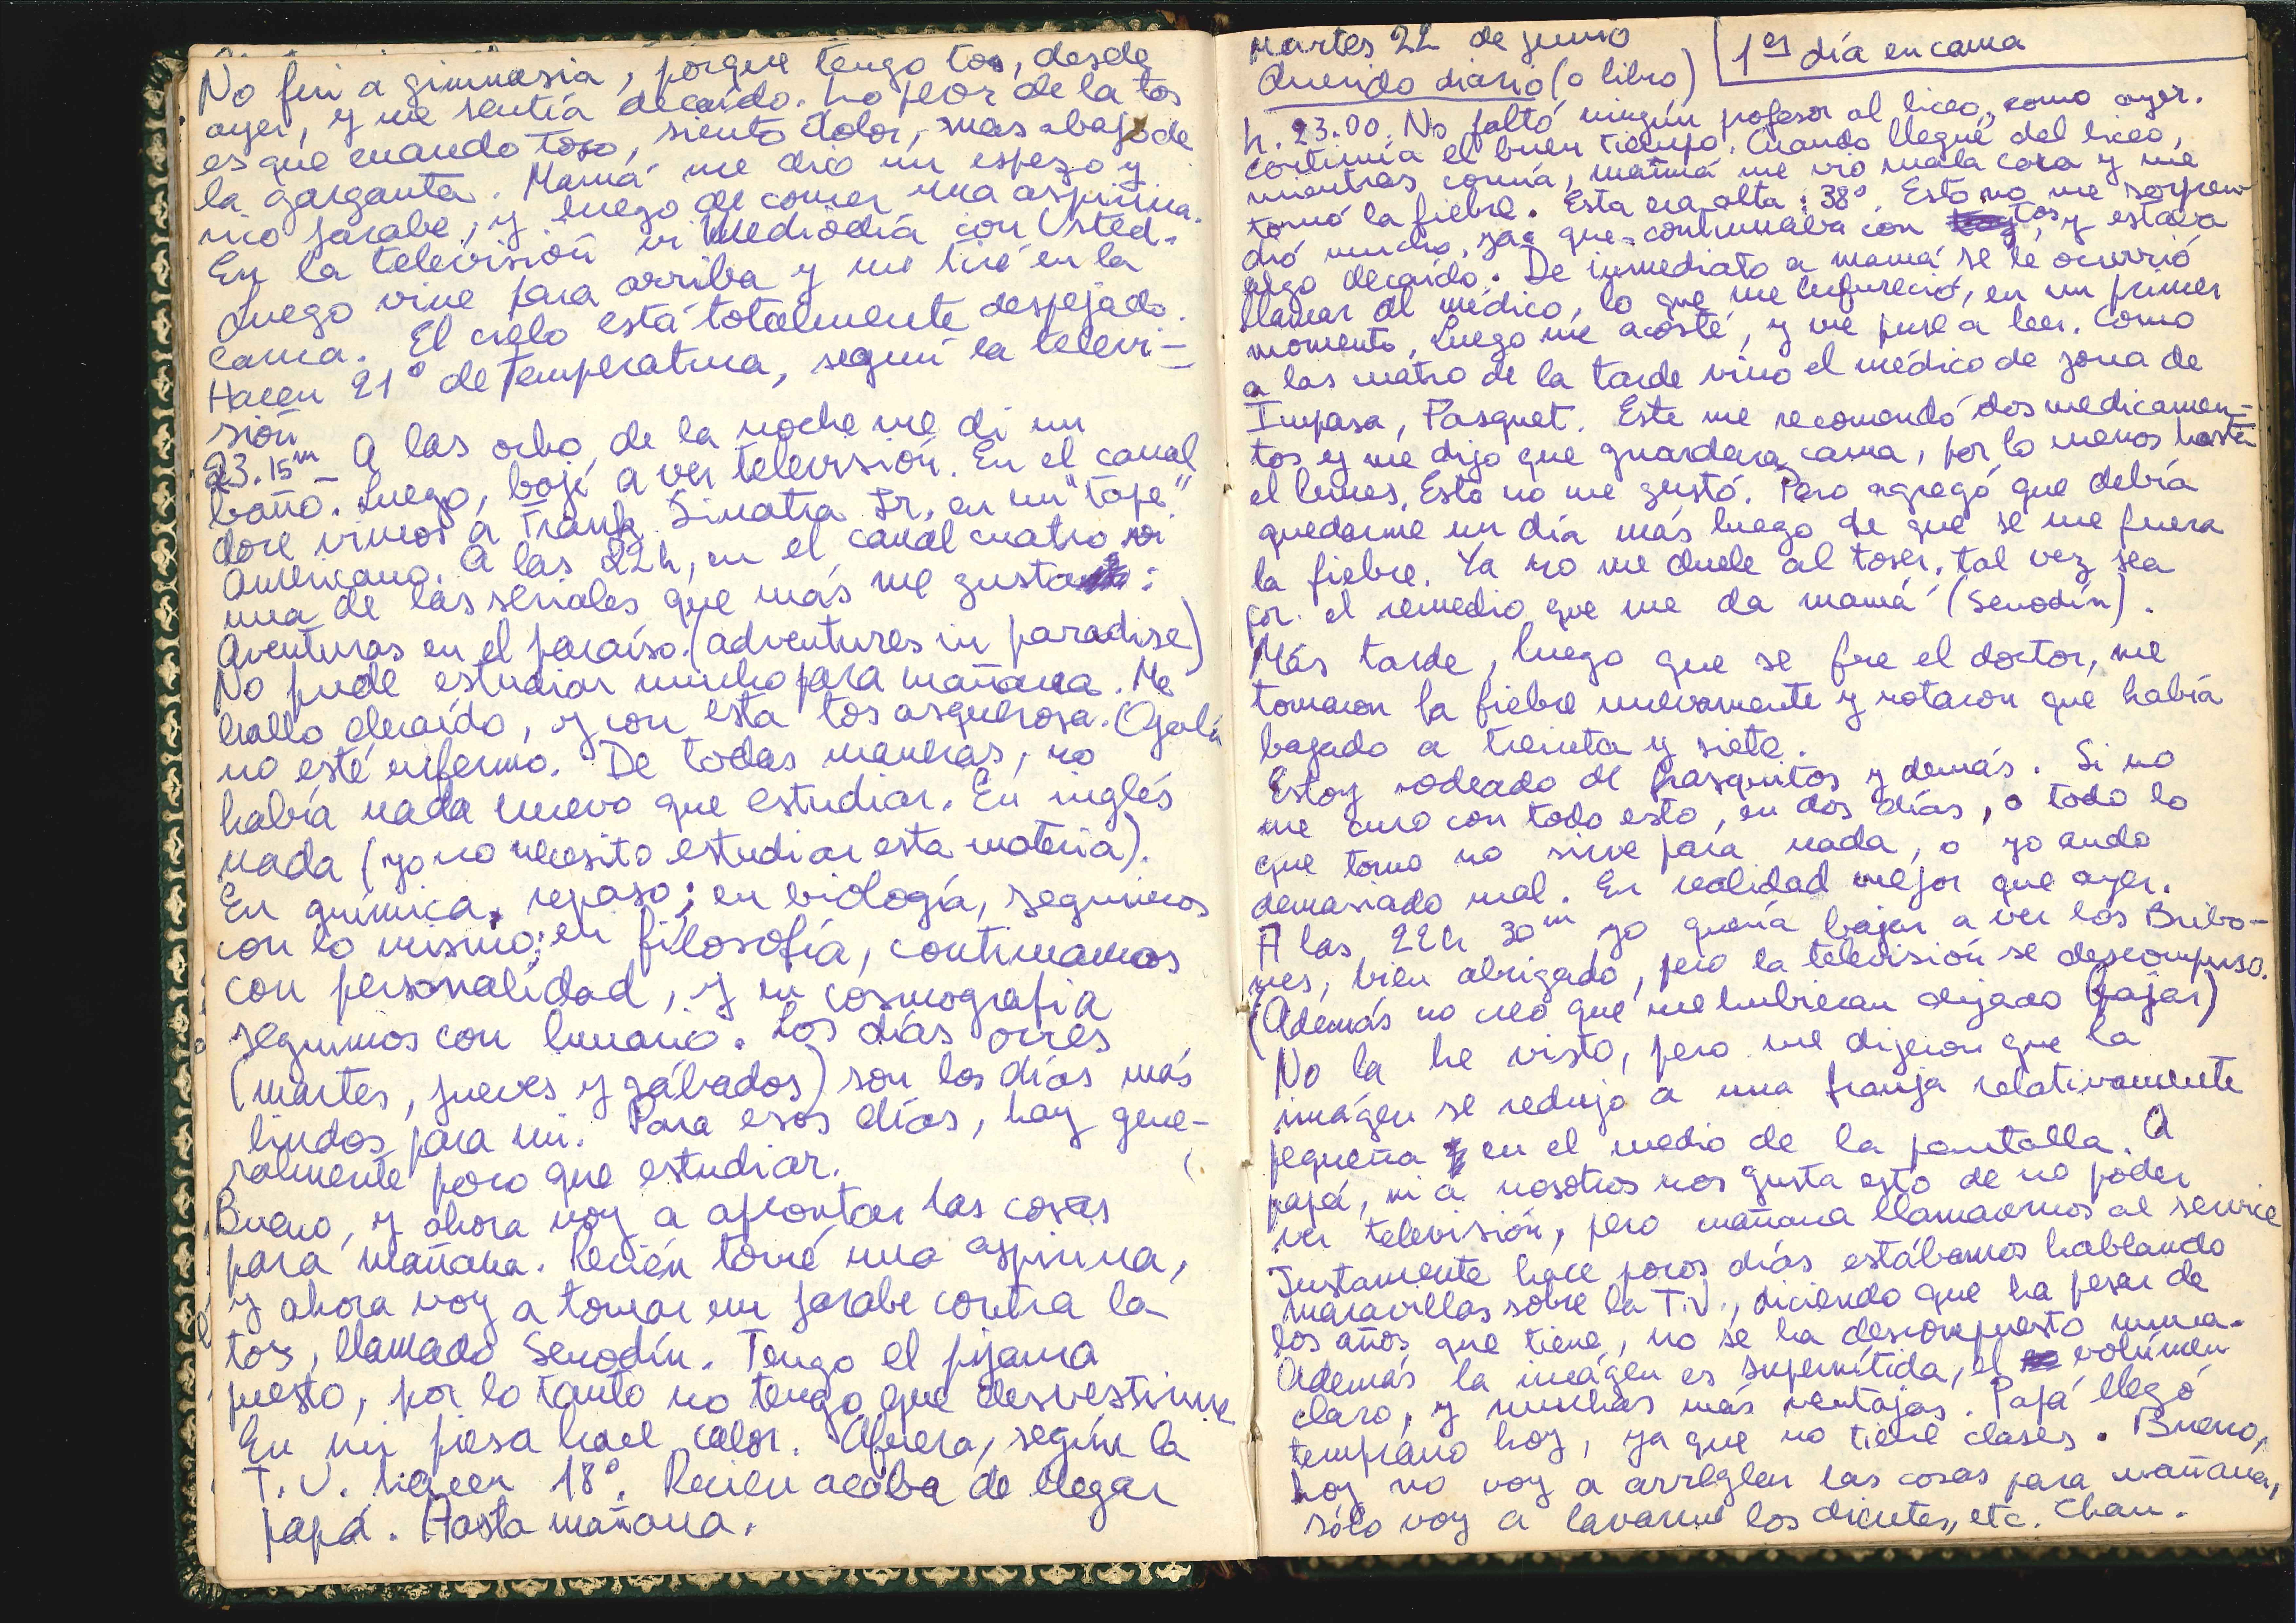 No fui a gimnasia, porque tengo tos, desde
ayer, y me sentía decaído. Lo peor de la tos
es que cuando toso, siento dolor, mas abajo de
la garganta. Mamá me dió un espeso y
rico jarabe, y luego de comer una aspirina.
En la televisión vi Mediodía con Usted.
Luego vine para arriba y me tiré en la
cama. El cielo está totalmente despejado.
Hacen 21° de temperatura, según la televi-
sión
23.15m - A las ocho de la noche me di un
baño. Luego, bajé a ver televisión. En el canal
doce vimos a Frank Sinatra Jr. en un "tape"
Americano. A las 22h, en el canal cuatro vi
una de las seriales que más me gusta:
Aventuras en el paraíso. (adventures in paradise)
No pude estudiar mucho para mañana. Me
hallo decaído, y con esta tos asquerosa. Ojalá
no esté enfermo. De todas maneras, no
había nada nuevo que estudiar. En inglés
nada (yo no necesito estudiar esta materia).
En química, repaso; en biología, seguimos
con lo mismo; en filosofía, continuamos
con personalidad, y en cosmografia
seguimos con lunario. Los días orres
(martes, jueves y sábados) son los días más
lindos para mi. Para esos días, hay gene-
ralmente poco que estudiar.
Bueno, y ahora voy a aprontar las cosas
para mañana. Recién tomé una aspirina,
y ahora voy a tomar un jarabe contra la
tos, llamado Senodín. Tengo el pijama
puesto, por lo tanto no tengo que desvestirme
En mi piesa hace calor. Afuera, según la
T.V. hacen 18°. Recien acaba de llegar
papá. Hasta mañana.
Martes 22 de junio
1er día en cama
Querido diario (o libro)
h. 23.00. No faltó ningún profesor al liceo, como ayer.
Continúa el buen tiempo. Cuando llegué del liceo,
mientras comía, mamá me vio mala cara y me
tomó la fiebre. Esta era alta: 38°. Esto no me sorpren-
dió mucho, ya que continuaba con tos, y estaba
algo decaído. De inmediato a mamá se le ocurrió
llamar al médico, lo que me enfureció, en un primer
momento. Luego me acosté, y me puse a leer. Como
a las cuatro de la tarde vino el médico de zona de
Impasa, Pasquet. Este me recomendó dos medicamen-
tos y me dijo que guardara cama, por lo menos hasta
el lunes. Esto no me gustó. Pero agregó que debía
quedarme un día más luego de que se me fuera
la fiebre. Ya no me duele al toser, tal vez sea
por el remedio que me da mamá (Senodín).
Más tarde, luego que se fue el doctor, me
tomaron la fiebre nuevamente y notaron que había
bajado a treinta y siete.
Estoy rodeado de frasquitos y demás. Si no
me curo con todo esto, en dos días, o todo lo
que tomo no sirve para nada, o yo ando
demasiado mal. En realidad mejor que ayer.
A las 22h 30m yo quería bajar a ver los Bribo-
nes, bien abrigado, pero la televisión se descompuso.
(Además no creo que me hubieran dejado bajar)
No la he visto, pero me dijeron que la
imágen se redujo a una franja relativamente
pequeña en el medio de la pantalla. A
papá, ni a nosotros nos gusta esto de no poder
ver televisión, pero mañana llamaremos al service
Justamente hace pocos días estábamos hablando
maravillas sobre la T.V., diciendo que ha pesar de
los años que tiene, no se ha descompuesto nunca.
Además la imágen es supernítida, el volúmen
claro, y muchas más ventajas. Papá llegó
temprano hoy, ya que no tiene clases. Bueno,
hoy no voy a arreglar las cosas para mañana,
sólo voy a lavarme los dientes, etc. Chau.